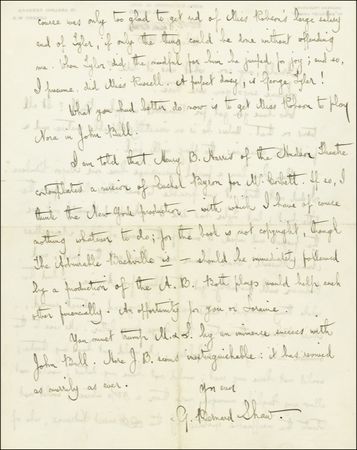 course was only too glad to get rid of Miss Robson's large salary
and of Tyler, if only the thing could be done without offending
me. When Tyler did the needful for him he jumped for joy; and so,
I presume, did Miss Russell. A perfect daisy, is George Tyler!
What you had better do now is to get Miss Robson to play
Nora in John Bull.
I am told that Henry B. Harris of the Hudson Theatre
contemplated a version of Cashel Byron for Mr Corbett. If so, I
think the New York production — with which I have of course
nothing whatever to do; for the book is not copyright, though
The Admirable Bashville is — should be immediately followed
by a production of the A. B. Both plays would help each
other financially. An opportunity for you or Loraine.
You must trump M. & S. by an immense success with
John Bull. Here J. B. seems inextinguishable: it has revived
as merrily as ever.
Yrs ever
G. Bernard Shaw.